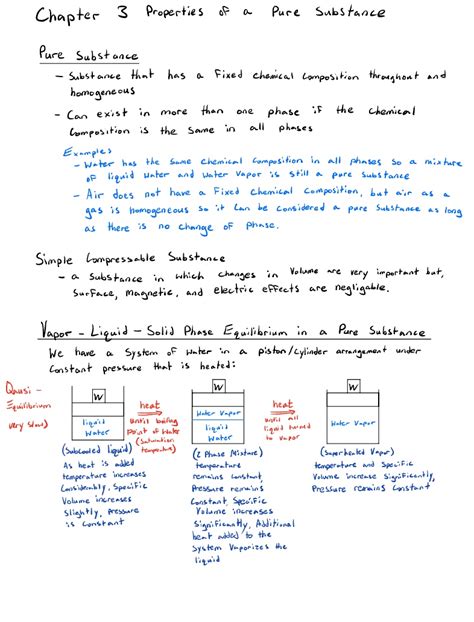 Chapter 3 Properties of a Pure Substance
Pure Substance
- Substance that has a Fixed Chemical Composition throughout and
homogeneous
- Can exist in more than one phase if the chemical
Composition is the same in all phases
Examples
- Water has the same chemical composition in all phases so a mixture
of liquid water and water vapor is still a pure substance
- Air does not have a Fixed Chemical Composition, but air as a
gas is homogeneous so it can be considered a pure substance as long
as there is no change of phase.
Simple Compressable Substance
- a Substance in which changes in Volume are very important but,
Surface, Magnetic, and electric effects are negligable.
Vapor - Liquid - Solid Phase Equilibrium in a Pure Substance
We have a System of Water in a piston/cylinder arrangement under
Constant pressure that is heated:
Qausi -
Equilibrium
very slow)
W
liquid
Water
(Subcooled liquid)
As heat is added
temperature increases
Considerably, Specific
Volume increases
Slightly, Pressure
is Constant
heat
Until boiling
Point of Water
(Saturation
temperature)
W
Water Vapor
liquid
Water
(2 Phase Mixture)
temperature
remains Constant,
Pressure remains
Constant, Specific
Volume increases
Significantly, Additional
heat added to the
System Vaporizes the
liquid
heat
Until all
liquid turned
to vapor
W
Water Vapor
(Superheated Vapor)
temperature and Specific
Volume increase Significantly,
Pressure remains Constant